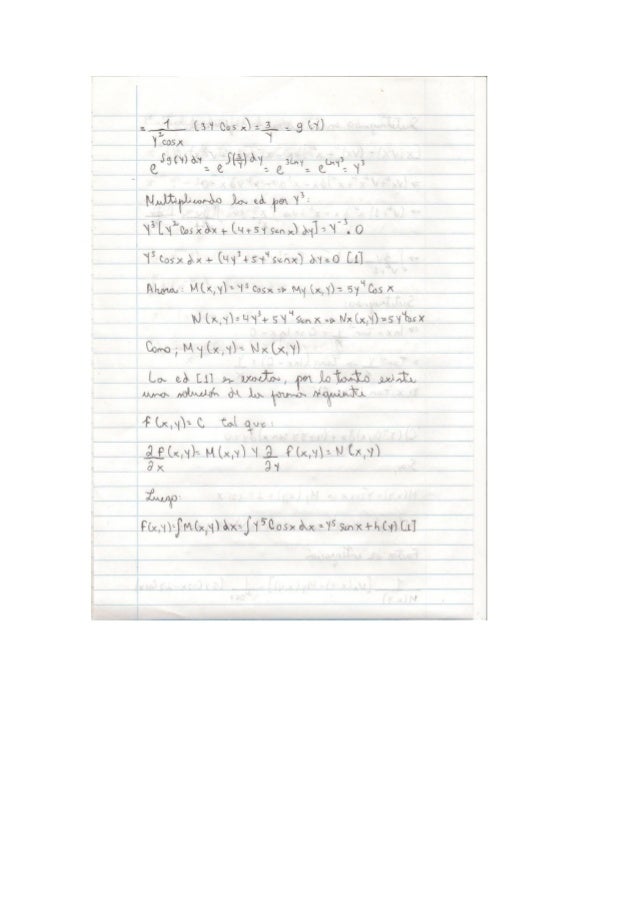 = 1/(y² cos x) (3y Cos x) = 3/y = g(y)
e^∫g(y)dy = e^∫(3/y)dy = e^3Lny = e^Lny³ = y³
Multiplicando la ed por y³:
y³[y² Cos x dx + (4+5y sen x) dy] = y⁻³.0
y⁵ Cos x dx + (4y³+5y⁴ senx) dy = 0 [1]
Ahora: M(x,y) = y⁵ Cosx => My(x,y) = 5y⁴ Cos x
N(x,y) = 4y³+5y⁴ Sen x => Nx(x,y) = 5y⁴ Cos x
Como; My(x,y) = Nx(x,y)
La ed [1] es exacta, por lo tanto existe
una solución de la forma siguiente
f(x,y) = C tal que:
∂f/∂x (x,y) = M(x,y) y ∂/∂y f(x,y) = N(x,y)
Luego:
f(x,y) = ∫M(x,y)dx = ∫y⁵ Cosx dx = y⁵ senx + h(y) [1]